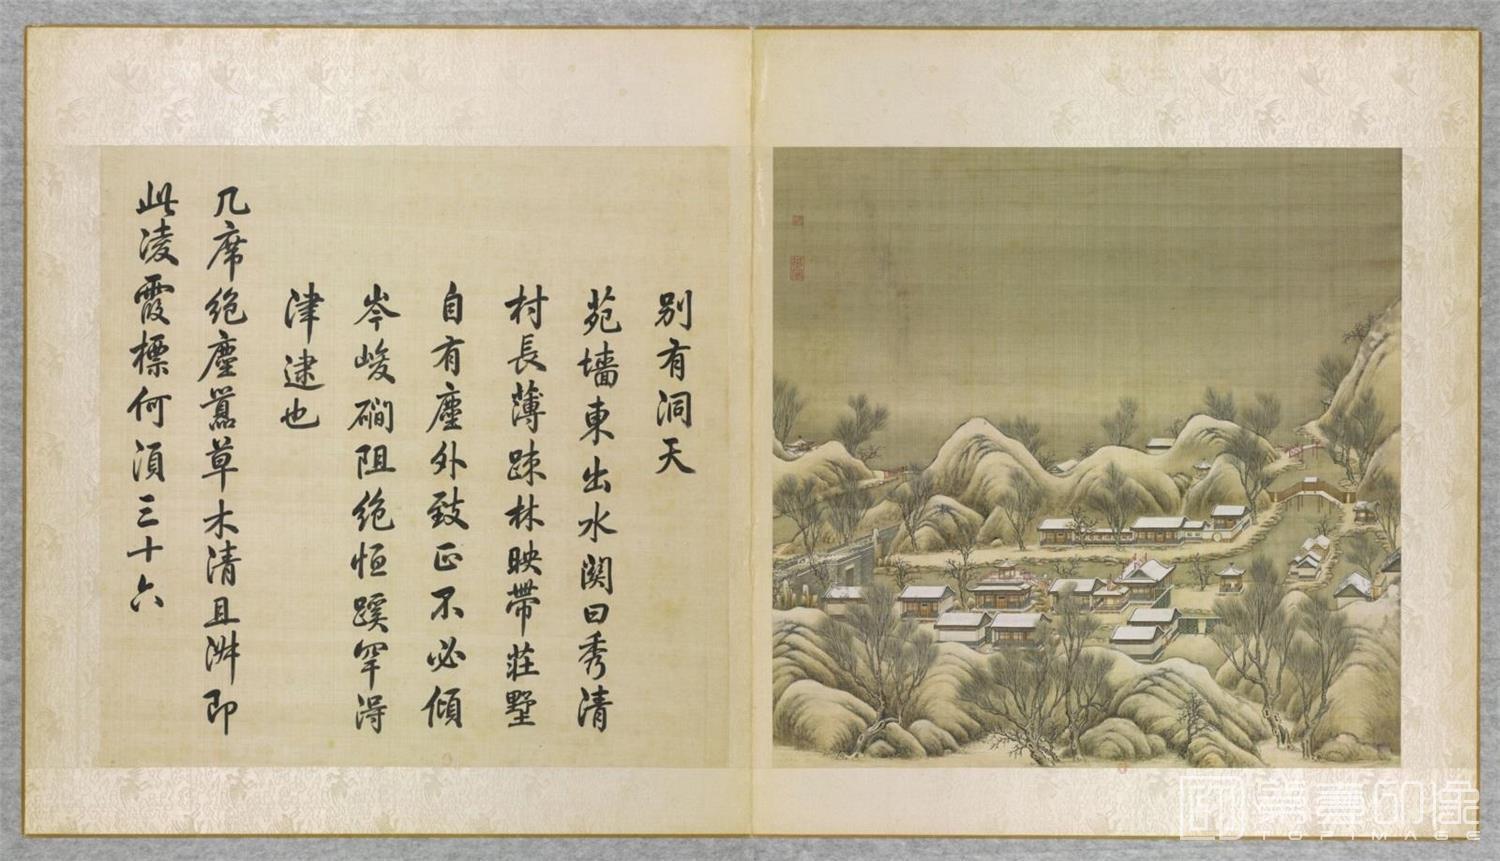 別有洞天
苑墻東出水関曰秀清
村長薄疎林映帶莊墅
自有塵外致正不必傾
岑峻磵阻絶恒蹊罕得
津逮也
几席絶塵囂草木清且淑即
此凌霞標何須三十六
TOPIMAGE